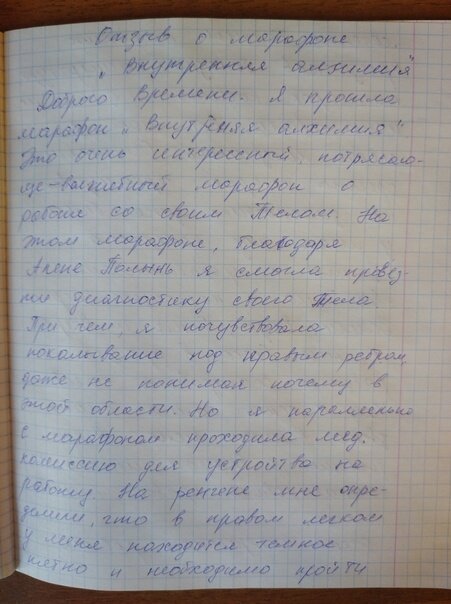 Отзыв о марафоне
„Внутренняя алхимия"
Доброго Времени. Я прошла
марафон „Внутреняя алхимия"
Это очень интересный, потрясаю-
ще-волшебный марафон о
работе со своим Телом. На
этом марафоне, благодаря
Алене Полынь я смогла провез-
ти диагностику своего Тела.
При чем, я почувствовала
покалывание под правым ребром,
даже не понимая почему в
этой области. Но я параллельно
с марафоном проходила мед.
комиссию для устройтва на
работу. На ренгене мне опре-
делили, что в правом легком
у меня находится темное
пятно и необходимо пройти